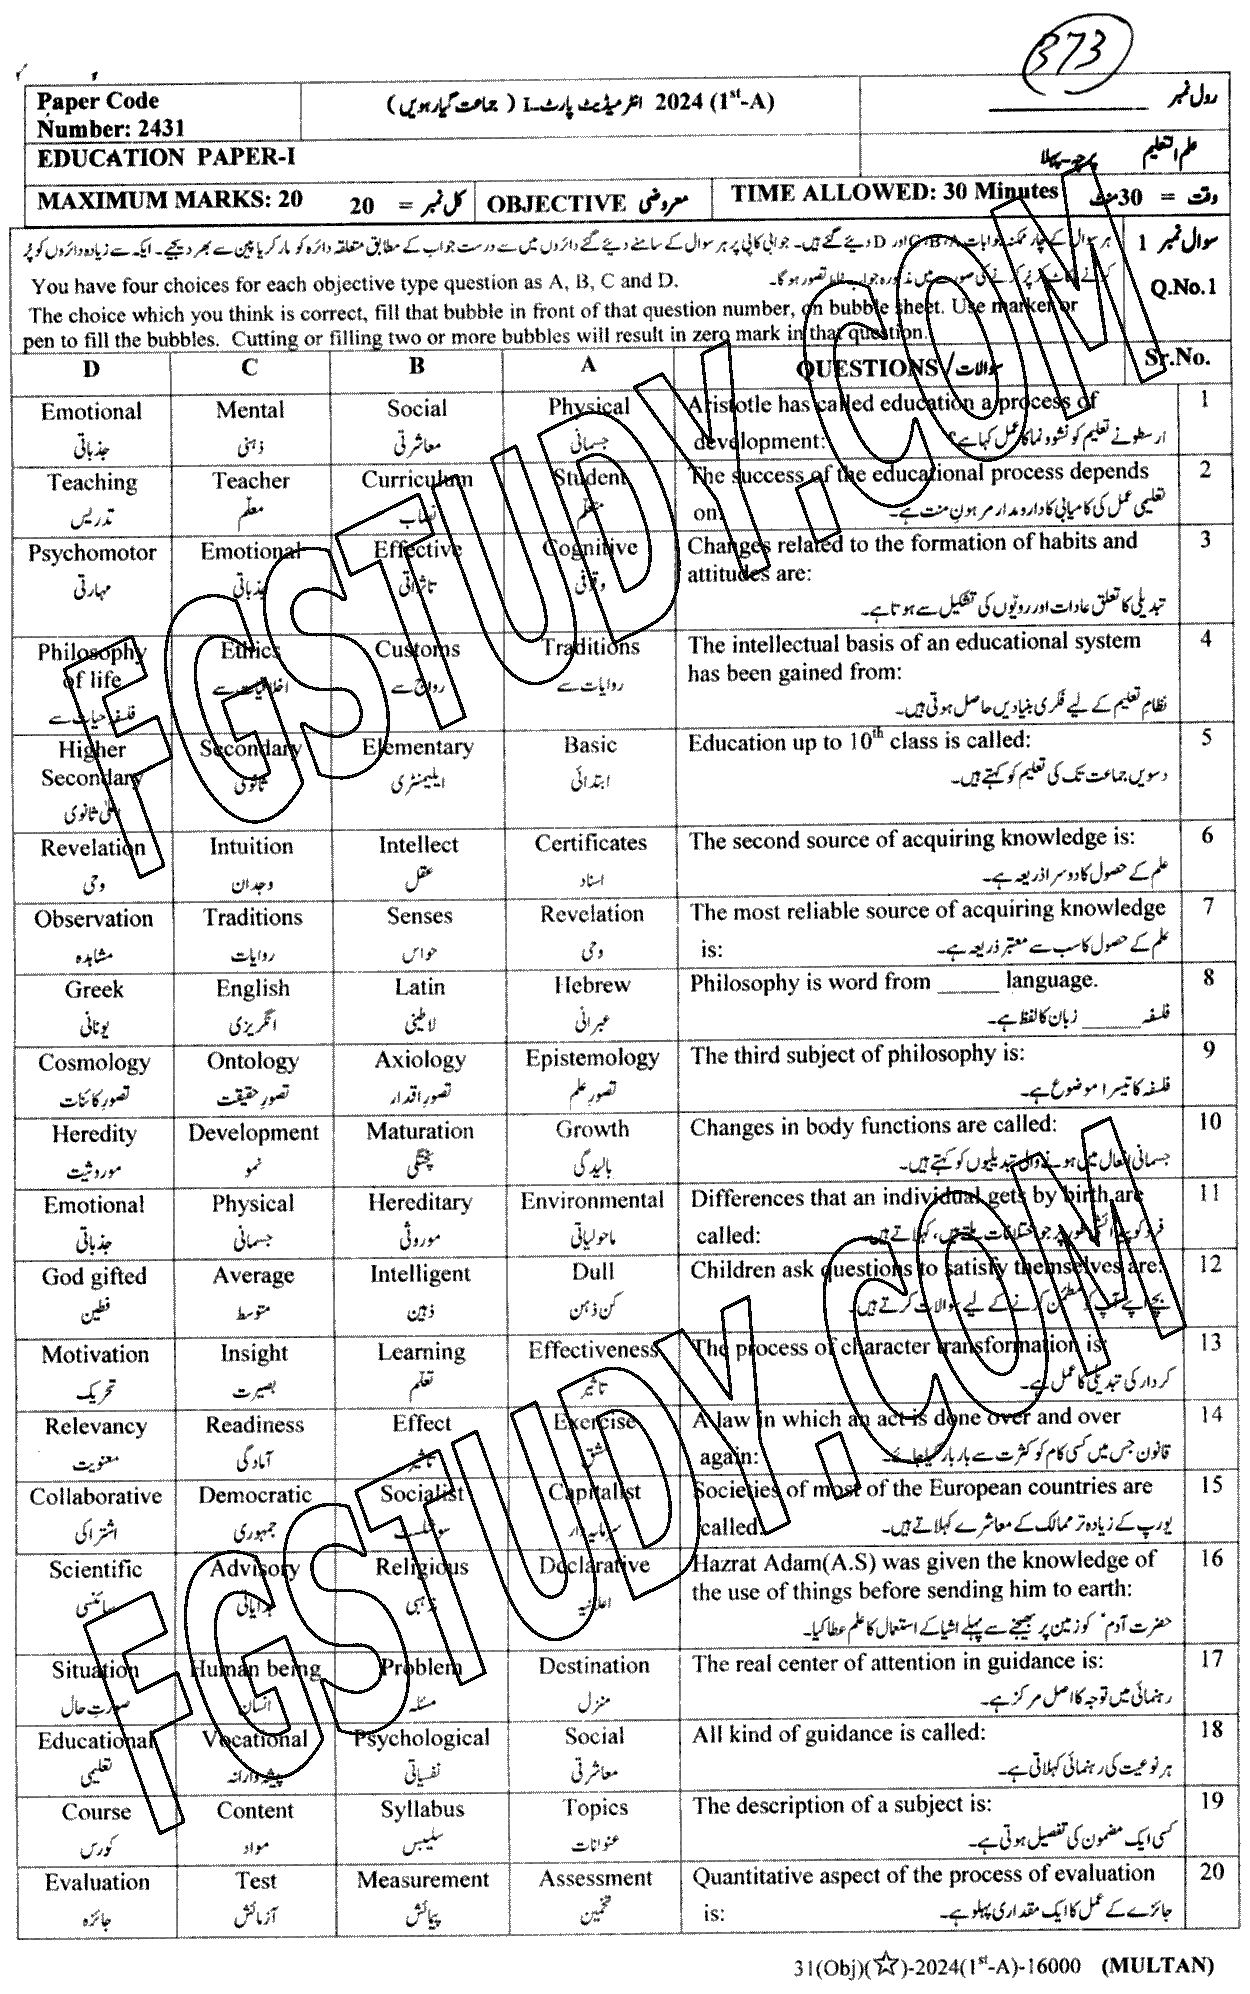 373
Paper Code
Number: 2431
2024 (1st-A) انٹرمیڈیٹ پارٹ-I (جماعت گیارہویں)
رول نمبر
EDUCATION PAPER-I
علم التعلیم پرچہ-پہلا
MAXIMUM MARKS: 20 کل نمبر = 20
OBJECTIVE معروضی
TIME ALLOWED: 30 Minutes وقت = 30 منٹ
سوال نمبر 1
Q.No.1
ہر سوال کے چار ممکنہ جوابات A، B، C اور D دیئے گئے ہیں۔ جوابی کاپی پر ہر سوال کے سامنے دیئے گئے دائروں میں سے درست جواب کے مطابق متعلقہ دائرہ کو مارکر یا پین سے بھر دیجیے۔ ایک سے زیادہ دائروں کو پُر
کرنے یا کاٹ کر پُر کرنے کی صورت میں مذکورہ جواب غلط تصور ہو گا۔
You have four choices for each objective type question as A, B, C and D.
The choice which you think is correct, fill that bubble in front of that question number, on bubble sheet. Use marker or
pen to fill the bubbles. Cutting or filling two or more bubbles will result in zero mark in that question.
D C B A QUESTIONS / سوالات Sr.No.
Emotional Mental Social Physical Aristotle has called education a process of 1
development: ارسطو نے تعلیم کو نشوونما کا عمل کہا ہے؟
جذباتی ذہنی معاشرتی جسمانی
Teaching Teacher Curriculum Student The success of the educational process depends 2
on: تعلیمی عمل کی کامیابی کا دارومدار مرہونِ منت ہے۔
تدریس معلّم نصاب متعلّم
Psychomotor Emotional Effective Cognitive Changes related to the formation of habits and 3
attitudes are:
مہارتی جذباتی تاثراتی وقوفی تبدیلی کا تعلق عادات اور رویّوں کی تشکیل سے ہوتا ہے۔
Philosophy Ethics Customs Traditions The intellectual basis of an educational system 4
of life has been gained from:
فلسفہ حیات سے اخلاقیات سے رواج سے روایات سے نظامِ تعلیم کے لیے فکری بنیادیں حاصل ہوتی ہیں۔
Higher Secondary Elementary Basic Education up to 10th class is called: 5
Secondary
اعلیٰ ثانوی ثانوی ایلیمنٹری ابتدائی دسویں جماعت تک کی تعلیم کو کہتے ہیں۔
Revelation Intuition Intellect Certificates The second source of acquiring knowledge is: 6
وحی وجدان عقل اسناد علم کے حصول کا دوسرا ذریعہ ہے۔
Observation Traditions Senses Revelation The most reliable source of acquiring knowledge 7
is: علم کے حصول کا سب سے معتبر ذریعہ ہے۔
مشاہدہ روایات حواس وحی
Greek English Latin Hebrew Philosophy is word from _____ language. 8
یونانی انگریزی لاطینی عبرانی فلسفہ _____ زبان کا لفظ ہے۔
Cosmology Ontology Axiology Epistemology The third subject of philosophy is: 9
تصورِ کائنات تصورِ حقیقت تصورِ اقدار تصورِ علم فلسفہ کا تیسرا موضوع ہے۔
Heredity Development Maturation Growth Changes in body functions are called: 10
موروثیت نمو پختگی بالیدگی جسمانی افعال میں ہونے والی تبدیلیوں کو کہتے ہیں۔
Emotional Physical Hereditary Environmental Differences that an individual gets by birth are 11
called: فرد کو پیدائشی طور پر جو اختلافات ملتے ہیں، کہلاتے ہیں۔
جذباتی جسمانی موروثی ماحولیاتی
God gifted Average Intelligent Dull Children ask questions to satisfy themselves are: 12
فطین متوسط ذہین کن ذہن بچے اپنے آپ کو مطمئن کرنے کے لیے سوالات کرتے ہیں۔
Motivation Insight Learning Effectiveness The process of character transformation is: 13
تحریک بصیرت تعلّم تاثیر کردار کی تبدیلی کا عمل ہے۔
Relevancy Readiness Effect Exercise A law in which an act is done over and over 14
again: قانون جس میں کسی کام کو کثرت سے بار بار کیا جائے۔
معنویت آمادگی تاثیر مشق
Collaborative Democratic Socialist Capitalist Societies of most of the European countries are 15
called: یورپ کے زیادہ تر ممالک کے معاشرے کہلاتے ہیں۔
اشتراکی جمہوری سوشلسٹ سرمایہ دار
Scientific Advisory Religious Declarative Hazrat Adam(A.S) was given the knowledge of 16
the use of things before sending him to earth:
سائنسی ہدایاتی مذہبی اعلانیہ حضرت آدمؑ کو زمین پر بھیجنے سے پہلے اشیا کے استعمال کا علم عطا کیا۔
Situation Human being Problem Destination The real center of attention in guidance is: 17
صورتِ حال انسان مسئلہ منزل رہنمائی میں توجہ کا اصل مرکز ہے۔
Educational Vocational Psychological Social All kind of guidance is called: 18
تعلیمی پیشہ وارانہ نفسیاتی معاشرتی ہر نوعیت کی رہنمائی کہلاتی ہے۔
Course Content Syllabus Topics The description of a subject is: 19
کورس مواد سلیبس عنوانات کسی ایک مضمون کی تفصیل ہوتی ہے۔
Evaluation Test Measurement Assessment Quantitative aspect of the process of evaluation 20
is: جائزے کے عمل کا ایک مقداری پہلو ہے۔
جائزہ آزمائش پیمائش تخمین
31(Obj)(☆)-2024(1st-A)-16000 (MULTAN)
FGSTUDY.COM
FGSTUDY.COM